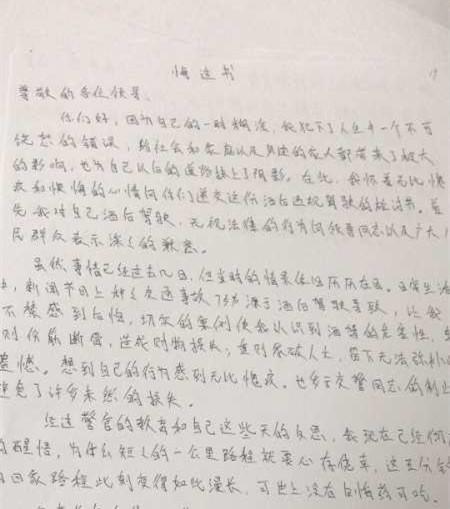 悔过书
尊敬的各位领导:
你们好,因为自己的一时糊涂,我犯下了人生中一个不可
饶恕的错误,给社会和家庭以及身边的家人都带来了极大
的影响,也为自己以后的道路抹上了阴影。在此,我怀着无比愧
疚和懊悔的心情向你们递交这份酒后违规驾驶的检讨书。首
先我对自己酒后驾驶,无视法律的行为向领导同志以及广大人
民群众表示深深的歉意。
虽然事情已经过去几日,但当时的情景依旧历历在目。日常生活
新闻节目上种种交通事故乃多源于酒后驾驶导致,让我
不禁感到后怕,切尔的案例使我认识到酒驾的危害性,
则伤筋断骨,造成财物损失;重则家破人亡,留下无法弥补的
遗憾。想到自己的行为感到无比愧疚。也多亏交警同志的制止
避免了许多未然的损失。
经过警官的教育和自己这些天的反思,我现在已经彻
的醒悟,为什么短短的一公里路程就要心存侥幸,这五分钟
回家路程此刻变得如此漫长,可世上没有后悔药可吃。